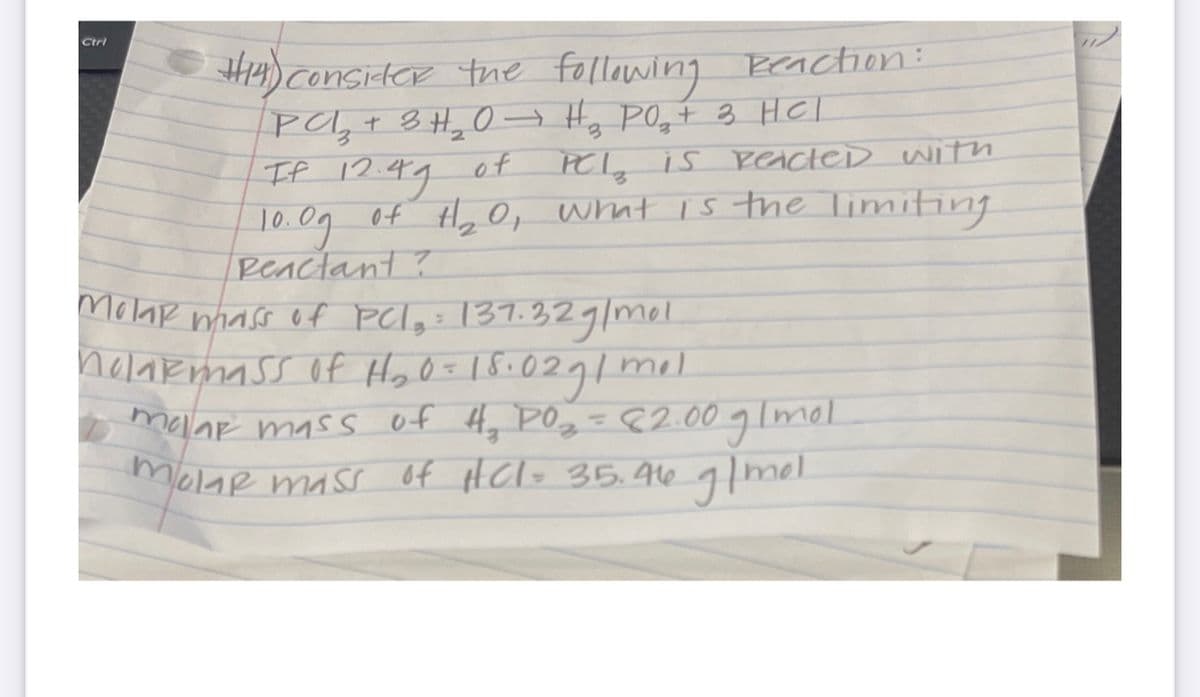 Ctrl
#14) consider the following Reaction:
PCl₃ + 3 H₂O → H₃PO₃ + 3 HCl
If 12.4g of PCl₃ is reacted with
10.0g of H₂O, what is the limiting
Reactant?
Molar mass of PCl₃ = 137.32g/mol
Molar mass of H₂O = 18.02g/mol
molar mass of H₃PO₃ = 82.00 g/mol
Molar mass of HCl = 35.46 g/mol